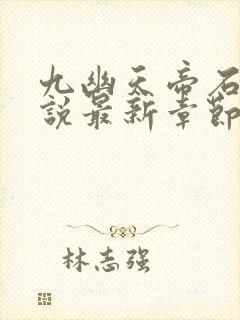 九幽天帝石
說最新章節
林志强